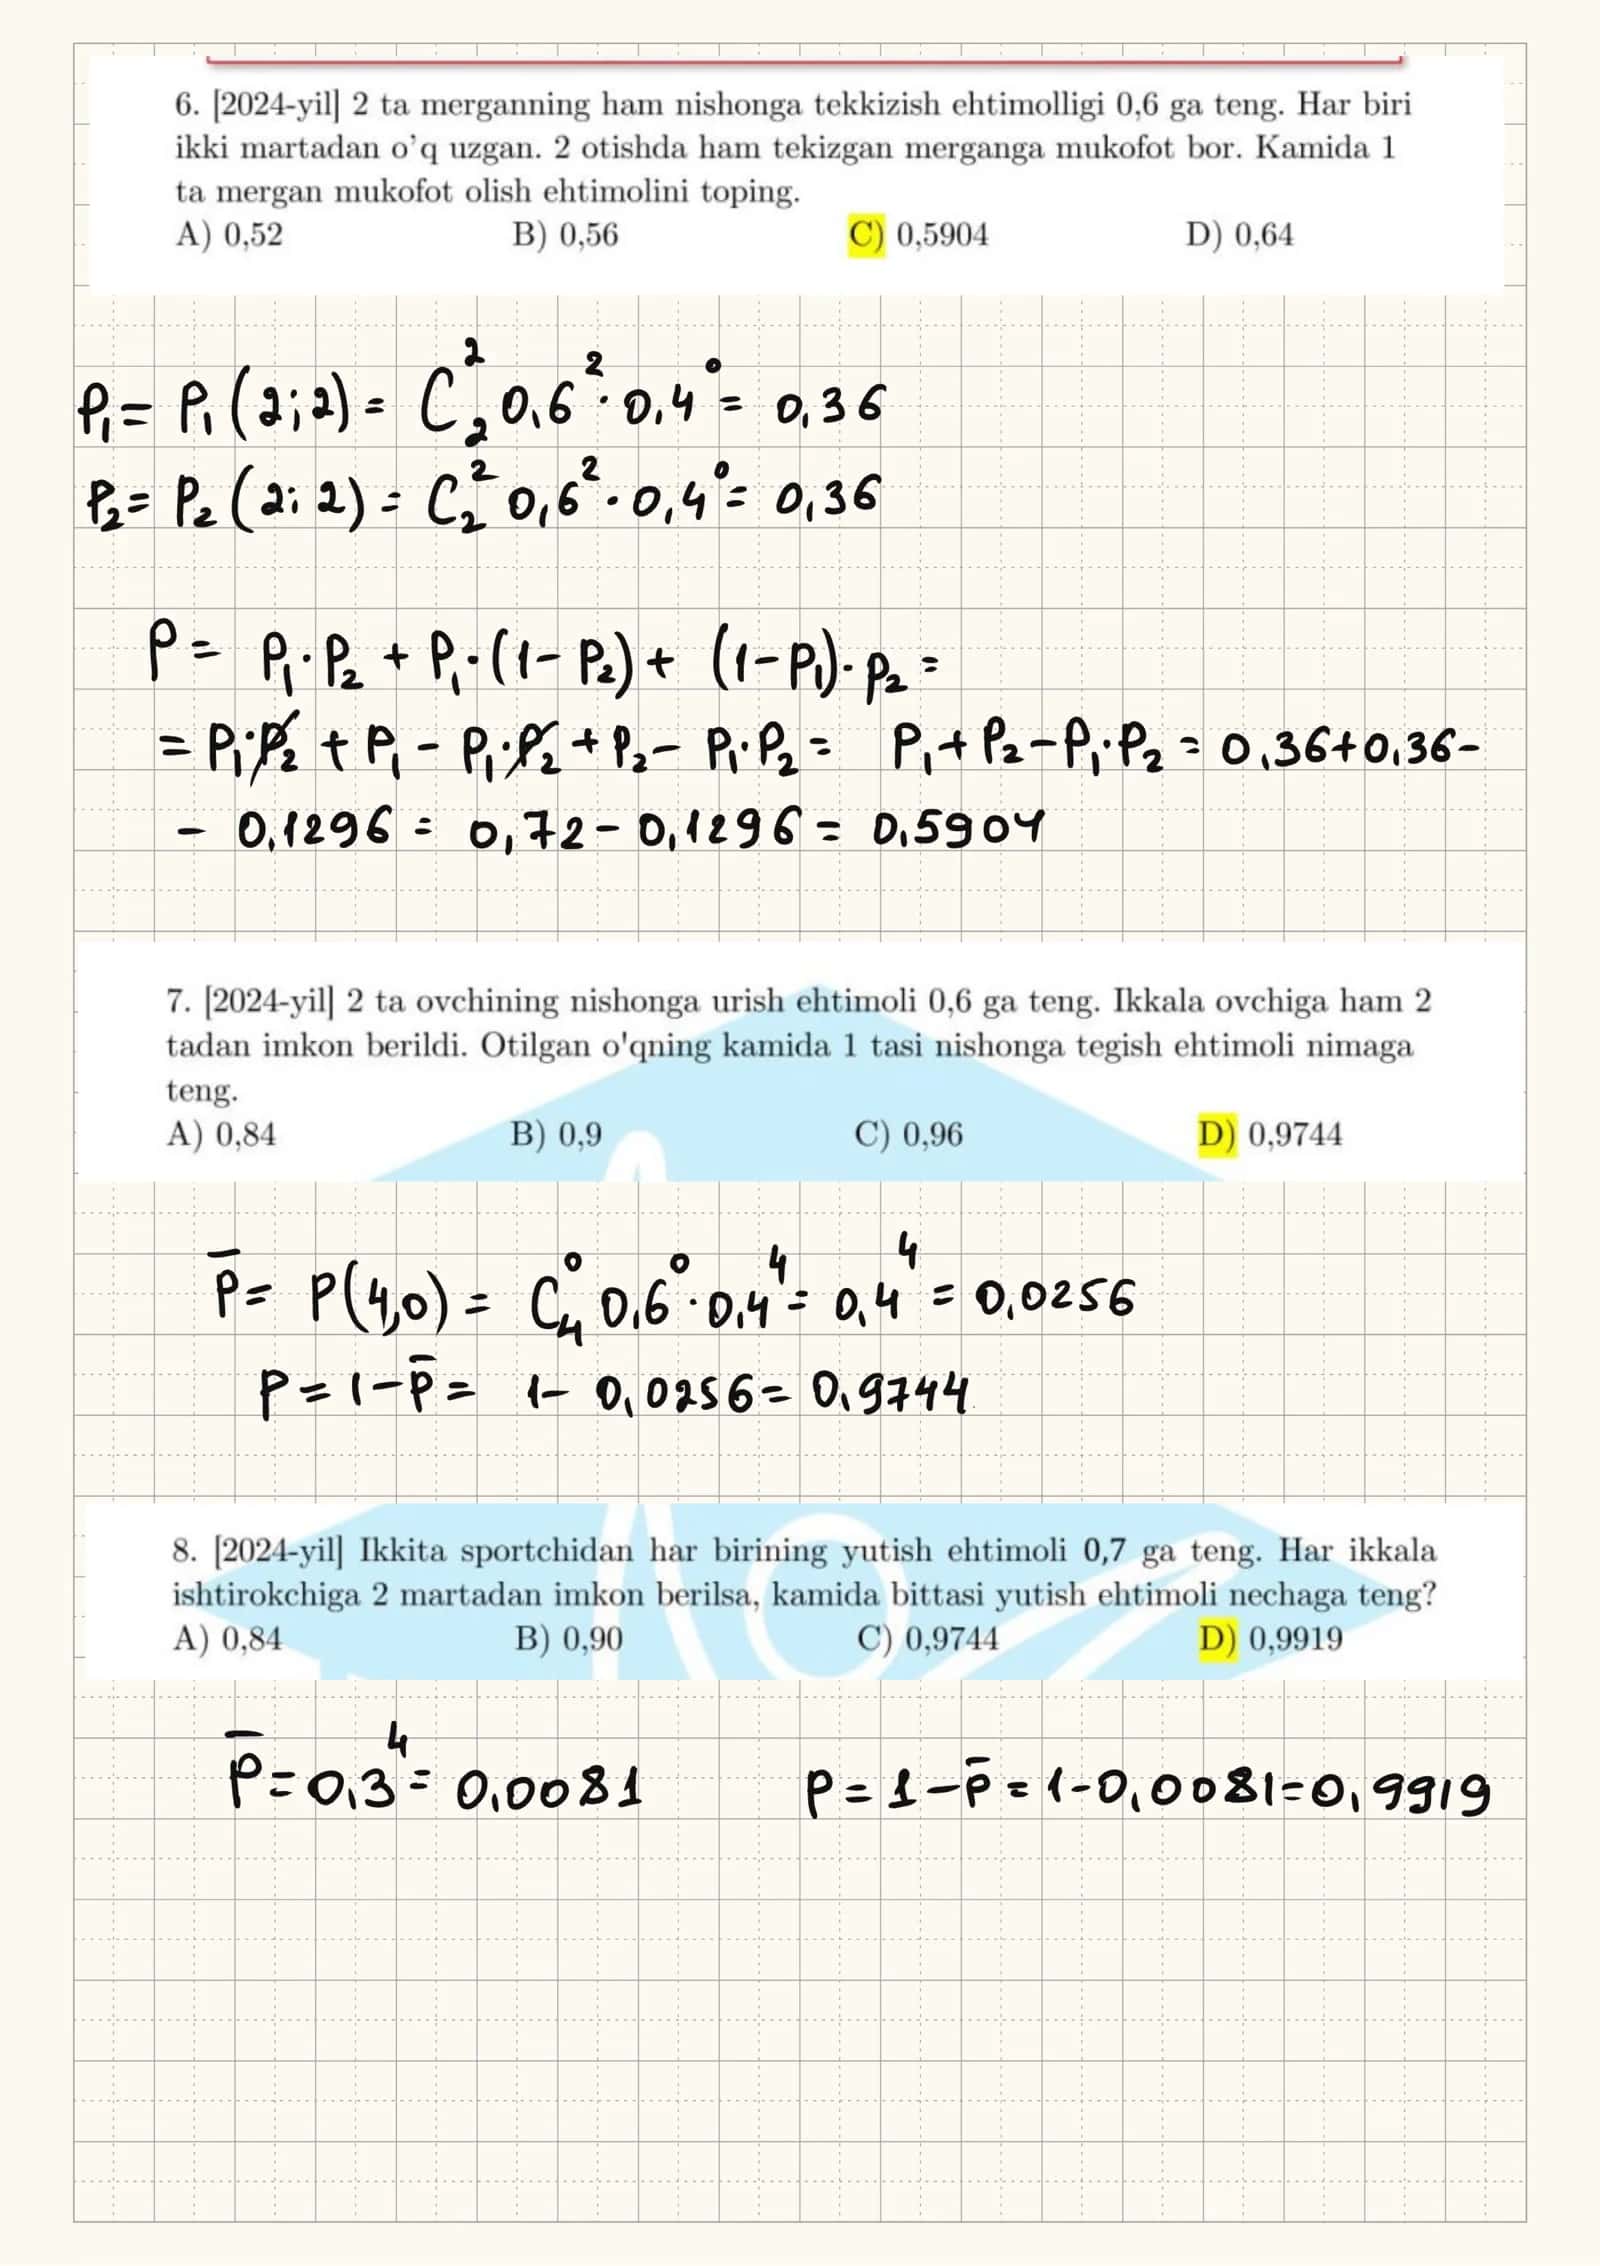 6. [2024-yil] 2 ta merganning ham nishonga tekkizish ehtimolligi 0,6 ga teng. Har biri
ikki martadan o’q uzgan. 2 otishda ham tekizgan merganga mukofot bor. Kamida 1
ta mergan mukofot olish ehtimolini toping.
A) 0,52 B) 0,56 C) 0,5904 D) 0,64
P₁ = P₁(2;2) = C₂² 0,6² · 0,4⁰ = 0,36
P₂ = P₂(2;2) = C₂² 0,6² · 0,4⁰ = 0,36
P = P₁·P₂ + P₁·(1-P₂) + (1-P₁)·P₂ =
= P₁·P₂ + P₁ - P₁·P₂ + P₂ - P₁·P₂ = P₁+P₂-P₁·P₂ = 0,36+0,36-
- 0,1296 = 0,72-0,1296 = 0,5904
7. [2024-yil] 2 ta ovchining nishonga urish ehtimoli 0,6 ga teng. Ikkala ovchiga ham 2
tadan imkon berildi. Otilgan o'qning kamida 1 tasi nishonga tegish ehtimoli nimaga
teng.
A) 0,84 B) 0,9 C) 0,96 D) 0,9744
P̅ = P(4,0) = C₄⁰ 0,6⁰ · 0,4⁴ = 0,4⁴ = 0,0256
P = 1-P̅ = 1- 0,0256 = 0,9744
8. [2024-yil] Ikkita sportchidan har birining yutish ehtimoli 0,7 ga teng. Har ikkala
ishtirokchiga 2 martadan imkon berilsa, kamida bittasi yutish ehtimoli nechaga teng?
A) 0,84 B) 0,90 C) 0,9744 D) 0,9919
P̅ = 0,3⁴ = 0,0081 P = 1-P̅ = 1-0,0081=0,9919